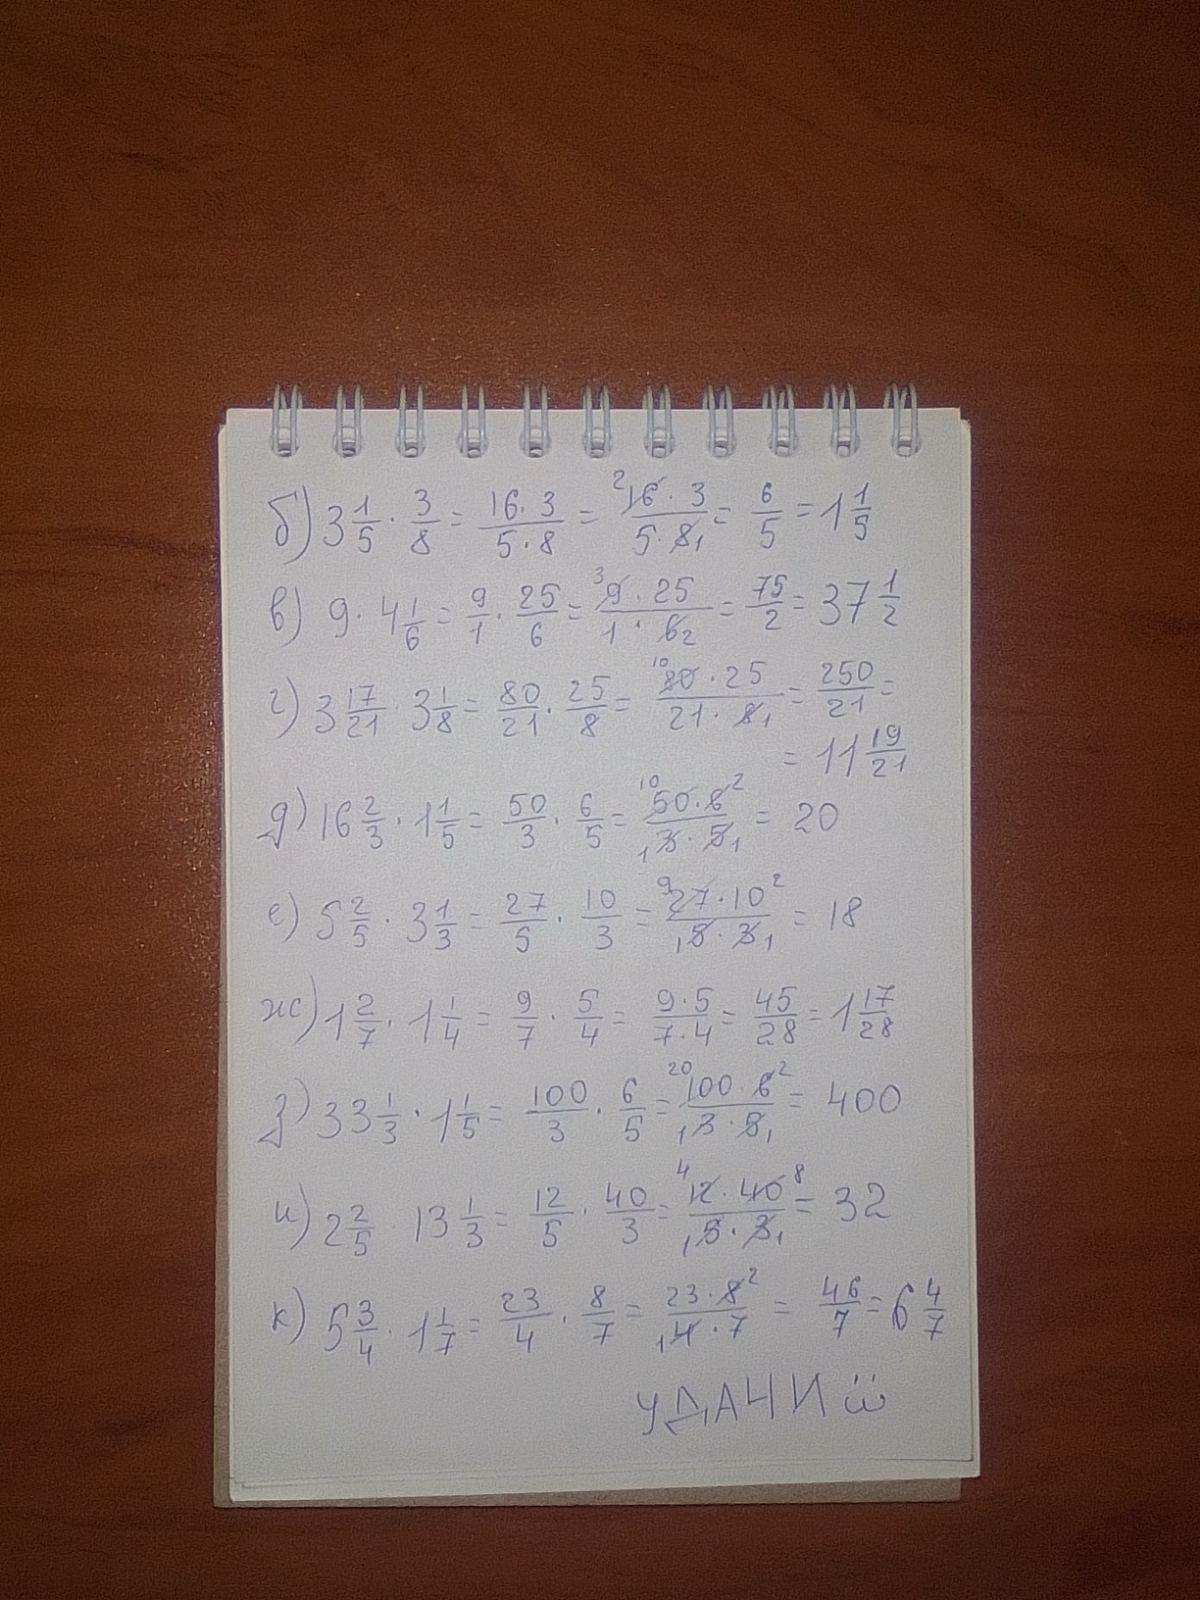 б) 3 1/5 · 3/8 = 16·3/5·8 = ²16·3/5·8₁ = 6/5 = 1 1/5
в) 9 · 4 1/6 = 9/1 · 25/6 = ³9·25/1·6₂ = 75/2 = 37 1/2
г) 3 17/21 · 3 1/8 = 80/21 · 25/8 = ¹⁰80·25/21·8₁ = 250/21 =
= 11 19/21
д) 16 2/3 · 1 1/5 = 50/3 · 6/5 = ¹⁰50·6²/₁3·5₁ = 20
е) 5 2/5 · 3 1/3 = 27/5 · 10/3 = ⁹27·10²/₁5·3₁ = 18
ж) 1 2/7 · 1 1/4 = 9/7 · 5/4 = 9·5/7·4 = 45/28 = 1 17/28
з) 33 1/3 · 1 1/5 = 100/3 · 6/5 = ²⁰100·6²/₁3·5₁ = 400
и) 2 2/5 · 13 1/3 = 12/5 · 40/3 = ⁴12·40⁸/₁5·3₁ = 32
к) 5 3/4 · 1 1/7 = 23/4 · 8/7 = 23·8²/₁4·7 = 46/7 = 6 4/7
УДАЧИ